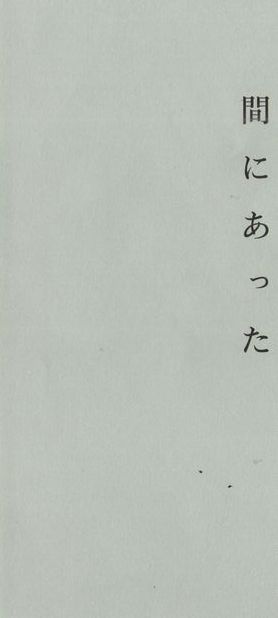 間にあった